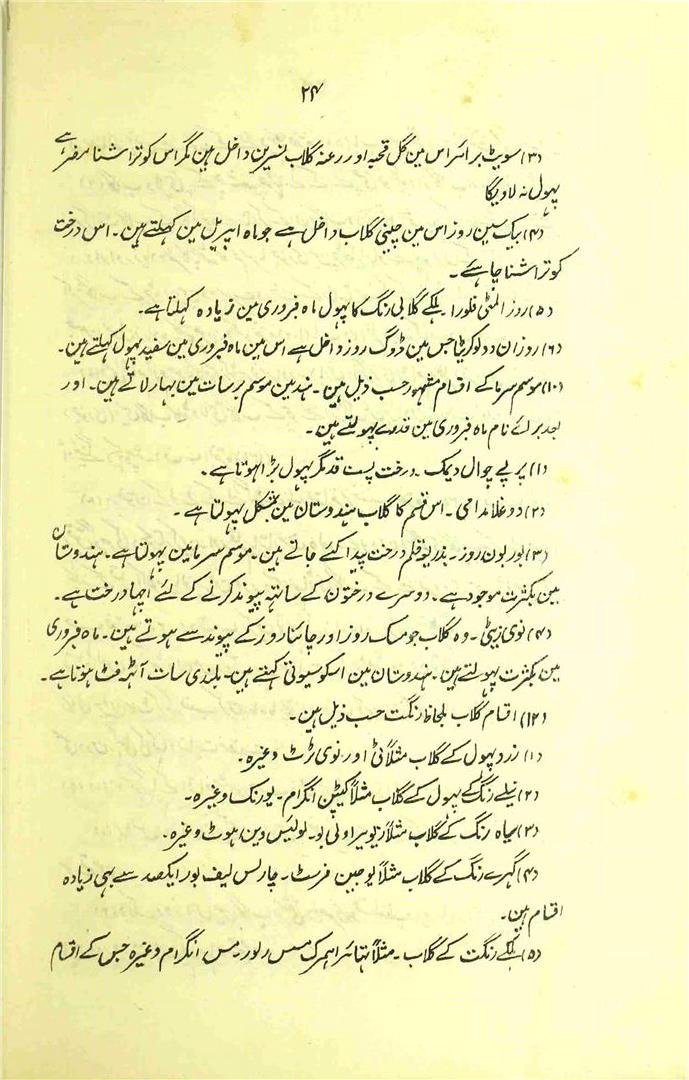 ۲۴
(۳) سویٹ برائر اس مین گل قحبہ اور رعنہ گلاب نسرین داخل ہین مگر اس کو تراشنا مضر ہے
پہول نہ لاویگا
(۴) بیک سین روز اس مین چینی گلاب داخل ہے جو ماہ اپریل مین کہلتے ہین۔ اس درخت
کو تراشنا چاہئے۔
(۵) روز المٹی فلورا۔ ہلکے گلابی رنگ کا پہول ماہ فروری مین زیادہ کہلتا ہے۔
(۶) روزان ددلوکریٹا جس مین ڈوگ روز داخل ہے اس مین ماہ فروری مین سفید پہول کہلتے ہین۔
(۱۰) موسم سرما کے اقسام مشہور حسب ذیل ہین۔ ہند مین موسم برسات مین بہار لاتے ہین۔ اور
بعد برائے نام ماہ فروری مین قدرے پہولتے ہین۔
(۱) پرپے چوال دیمک۔ درخت پست قد مگر پہول بڑا ہوتا ہے۔
(۲) دو غلا مدامی۔ اس قسم کا گلاب ہندوستان مین بمشکل پہولتا ہے۔
(۳) بوربون روز۔ بذریعہ قلم درخت پیدا کئے جاتے ہین۔ موسم سرما مین پہولتا ہے۔ ہندوستان
مین بکثرت موجود ہے۔ دوسرے درختون کے ساتہہ پیوند کرنے کے لئے اچہا درخت ہے۔
(۴) نوی زیٹی۔ وہ گلاب جو مسک روز اور چائنا روز کے پیوند سے ہوتے ہین۔ ماہ فروری
مین بکثرت پہولتے ہین۔ ہندوستان مین اسکو سیوتی کہتے ہین۔ بلندی سات آٹہہ فٹ ہوتا ہے۔
(۱۲) اقسام گلاب بلحاظ رنگت حسب ذیل ہین۔
(۱) زرد پہول کے گلاب مثلاً ٹی اور نوی ٹرٹ وغیرہ۔
(۲) نیلے رنگ کے پہول کے گلاب مثلاً کیپٹن انگرام۔ یورنک وغیرہ۔
(۳) سیاہ رنگ کے گلاب مثلاً زیویر اولی بو۔ لوئیس وین ہوٹ وغیرہ۔
(۴) گہرے رنگ کے گلاب مثلاً یوجین فرسٹ۔ چارلس لیف بور ایکصد سے بہی زیادہ
اقسام ہین۔
(۵) ہلکے رنگت کے گلاب۔ مثلاً مس رلور۔ مس انگرام وغیرہ جس کے اقسام